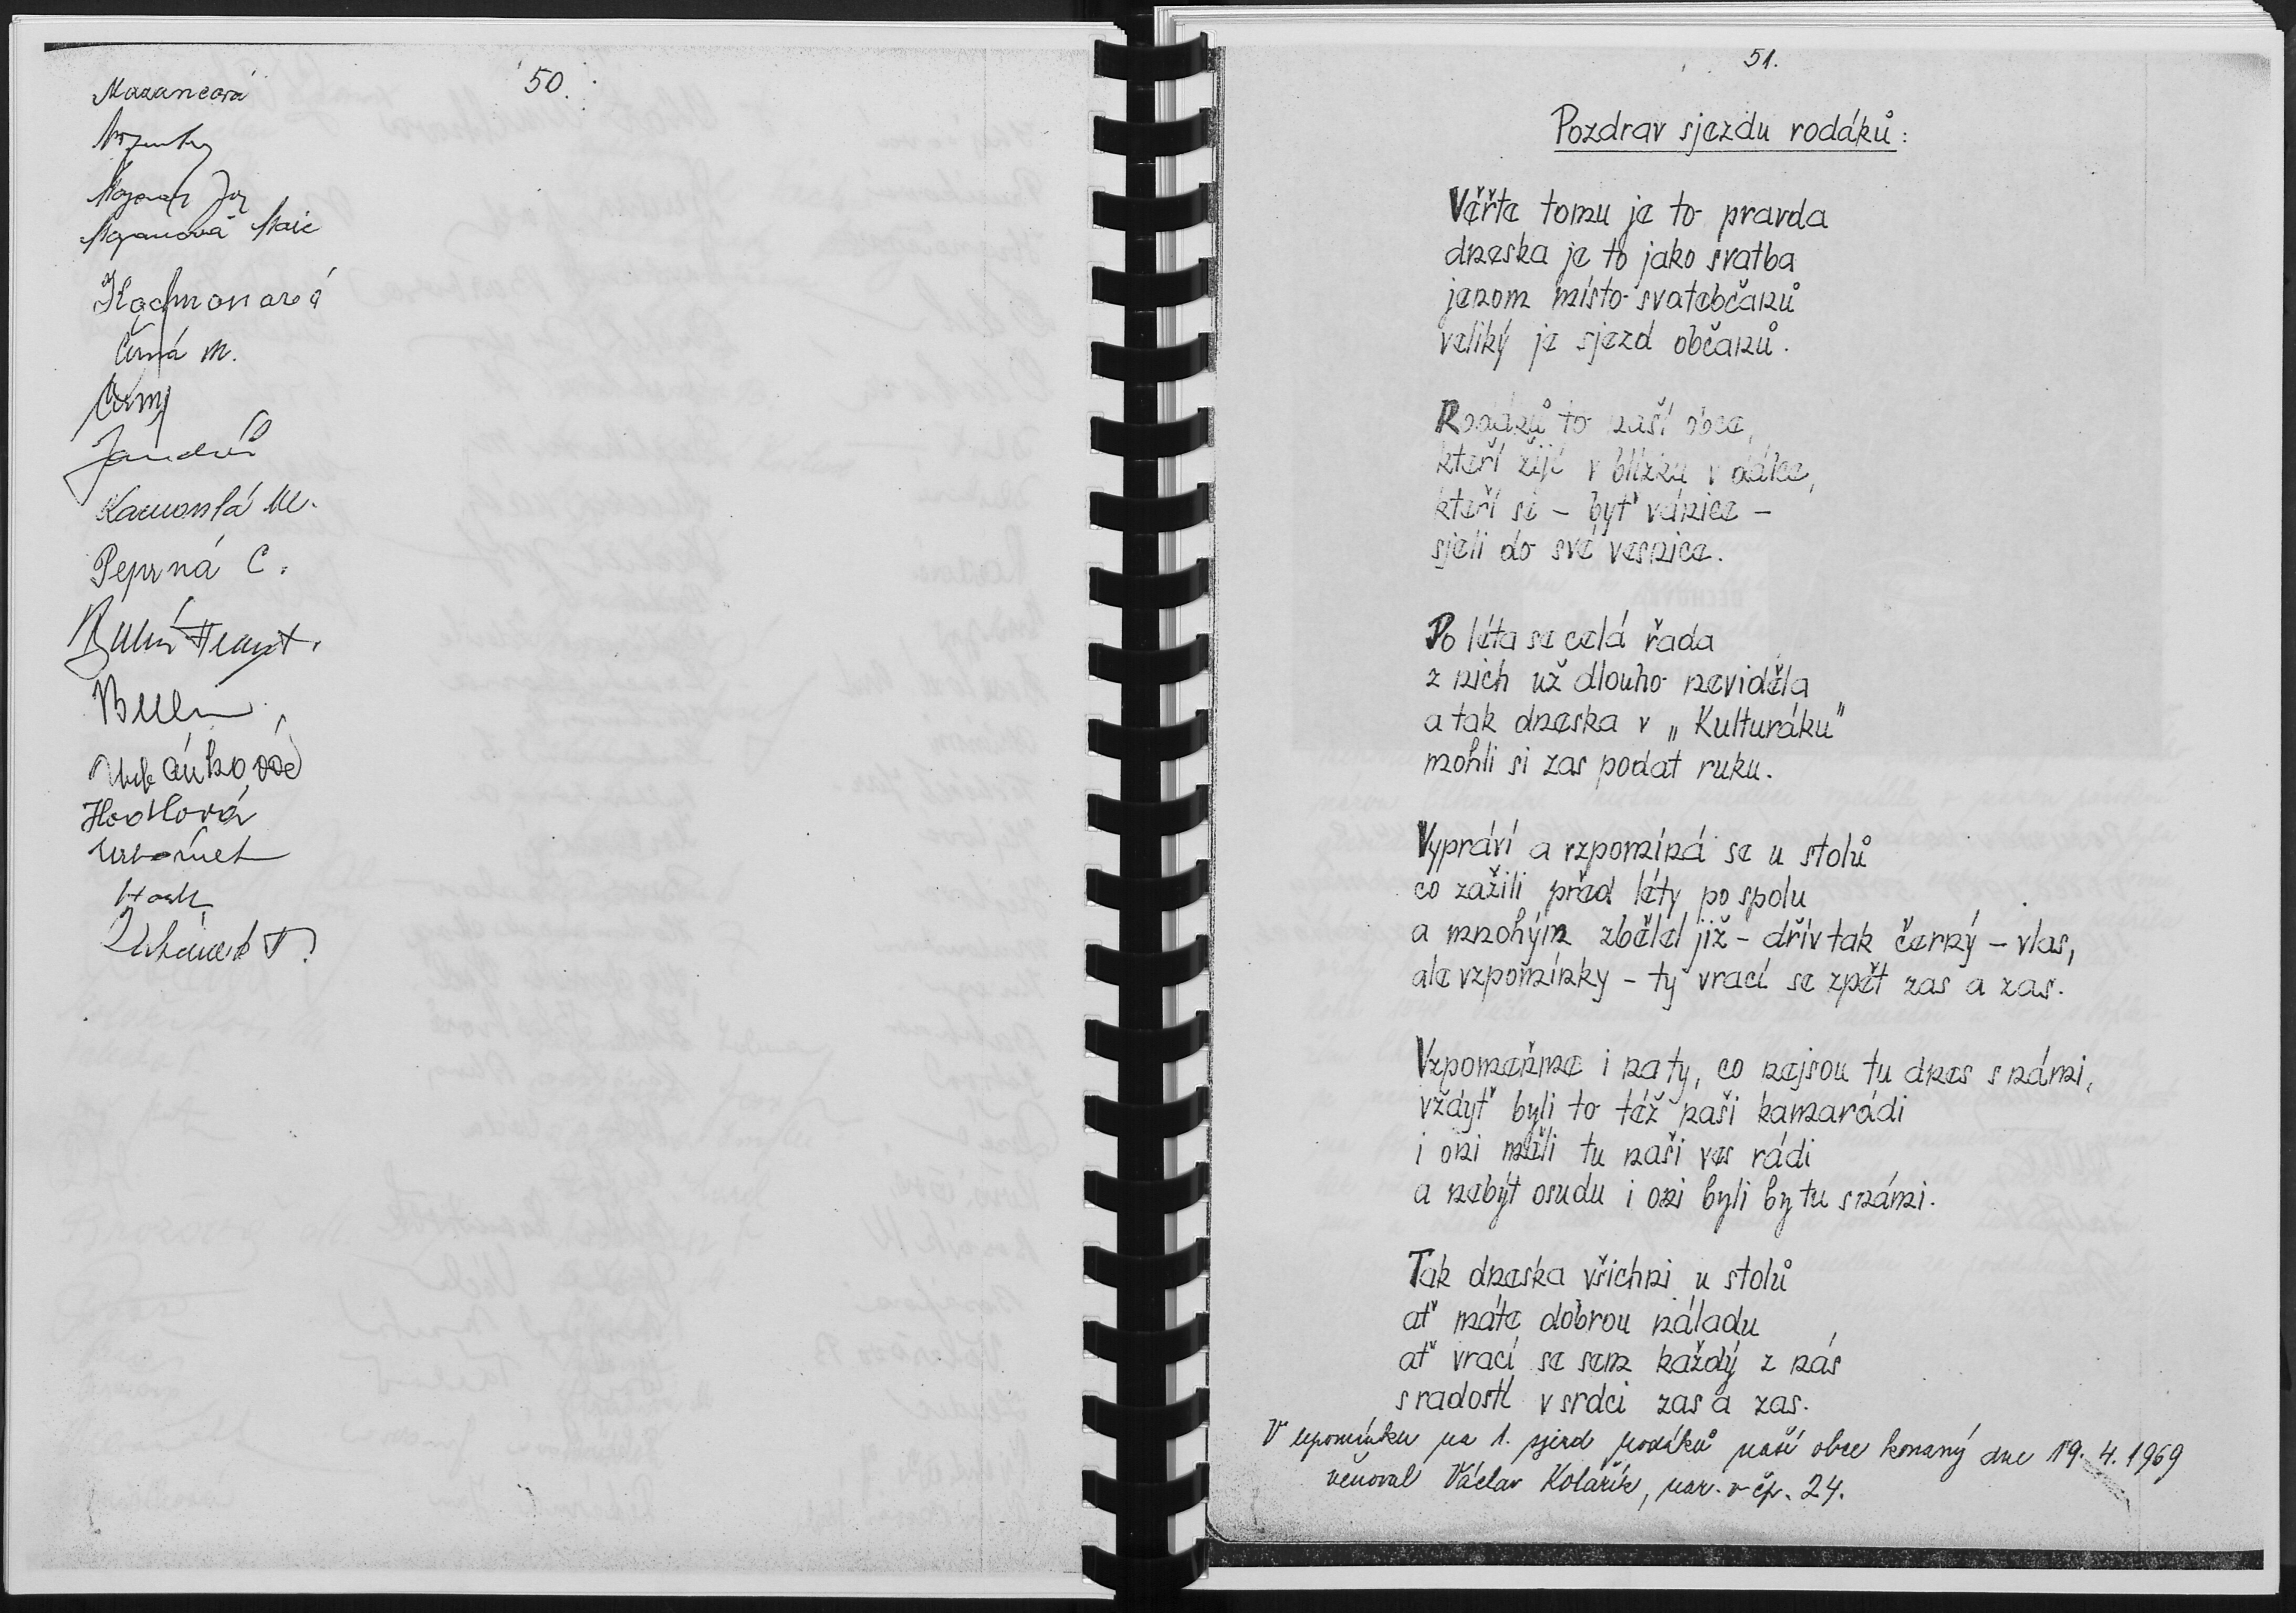 50.
Mazancová
Černá M.
Černý
Jandů
Peprná C.
Hodlová
51.
Pozdrav sjezdu rodáků:
Věřte tomu je to pravda
dneska je to jako svatba
jenom místo svatebčanů
veliký je sjezd občanů.
Rodáků to naší obce,
kteří žijí v blízku v dálce,
kteří si – byť vánice –
sjeli do své vesnice.
Po léta se celá řada
z nich už dlouho neviděla
a tak dneska v „Kulturáku"
mohli si zas podat ruku.
Vypráví a vzpomíná se u stolů
co zažili před léty po spolu
a mnohým zbělel již – dřív tak černý – vlas,
ale vzpomínky – ty vrací se zpět zas a zas.
Vzpomeňme i na ty, co nejsou tu dnes s námi,
vždyť byli to též naši kamarádi
i oni měli tu naši ves rádi
a nebýt osudu i oni byli by tu s námi.
Tak dneska všichni u stolů
ať máte dobrou náladu
ať vrací se sem každý z nás
s radostí v srdci zas a zas.
V upomínku na 1. sjezd rodáků naší obce konaný dne 19. 4. 1969
věnoval Václav Kolařík, nar. v čp. 24.